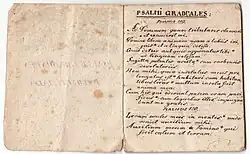 PSALMI GRADUALES.
Psalmus 119.
Ad Dominum cum tribularer clamavi
et exaudivit me.
Domine libera animam meam a labiis ini
quis et a lingua dolosa.
Quid detur tibi aut quid apponatur tibi
ad linguam dolosam
Sagittæ potentis acutæ cum carbonibus
desolatoriis
Heu mihi quia incolatus meus pro
longatus est habitavi cum habi
tantibus multum incola fuit
anima mea
Cum his qui oderunt pacem eram paci
ficus cum loquebar illis impugna
bant me gratis
Psalmus 120.
Levavi oculos meos in montes unde
veniet auxilium mihi.
Auxilium meum a Domino qui
fecit cœlum et terram.